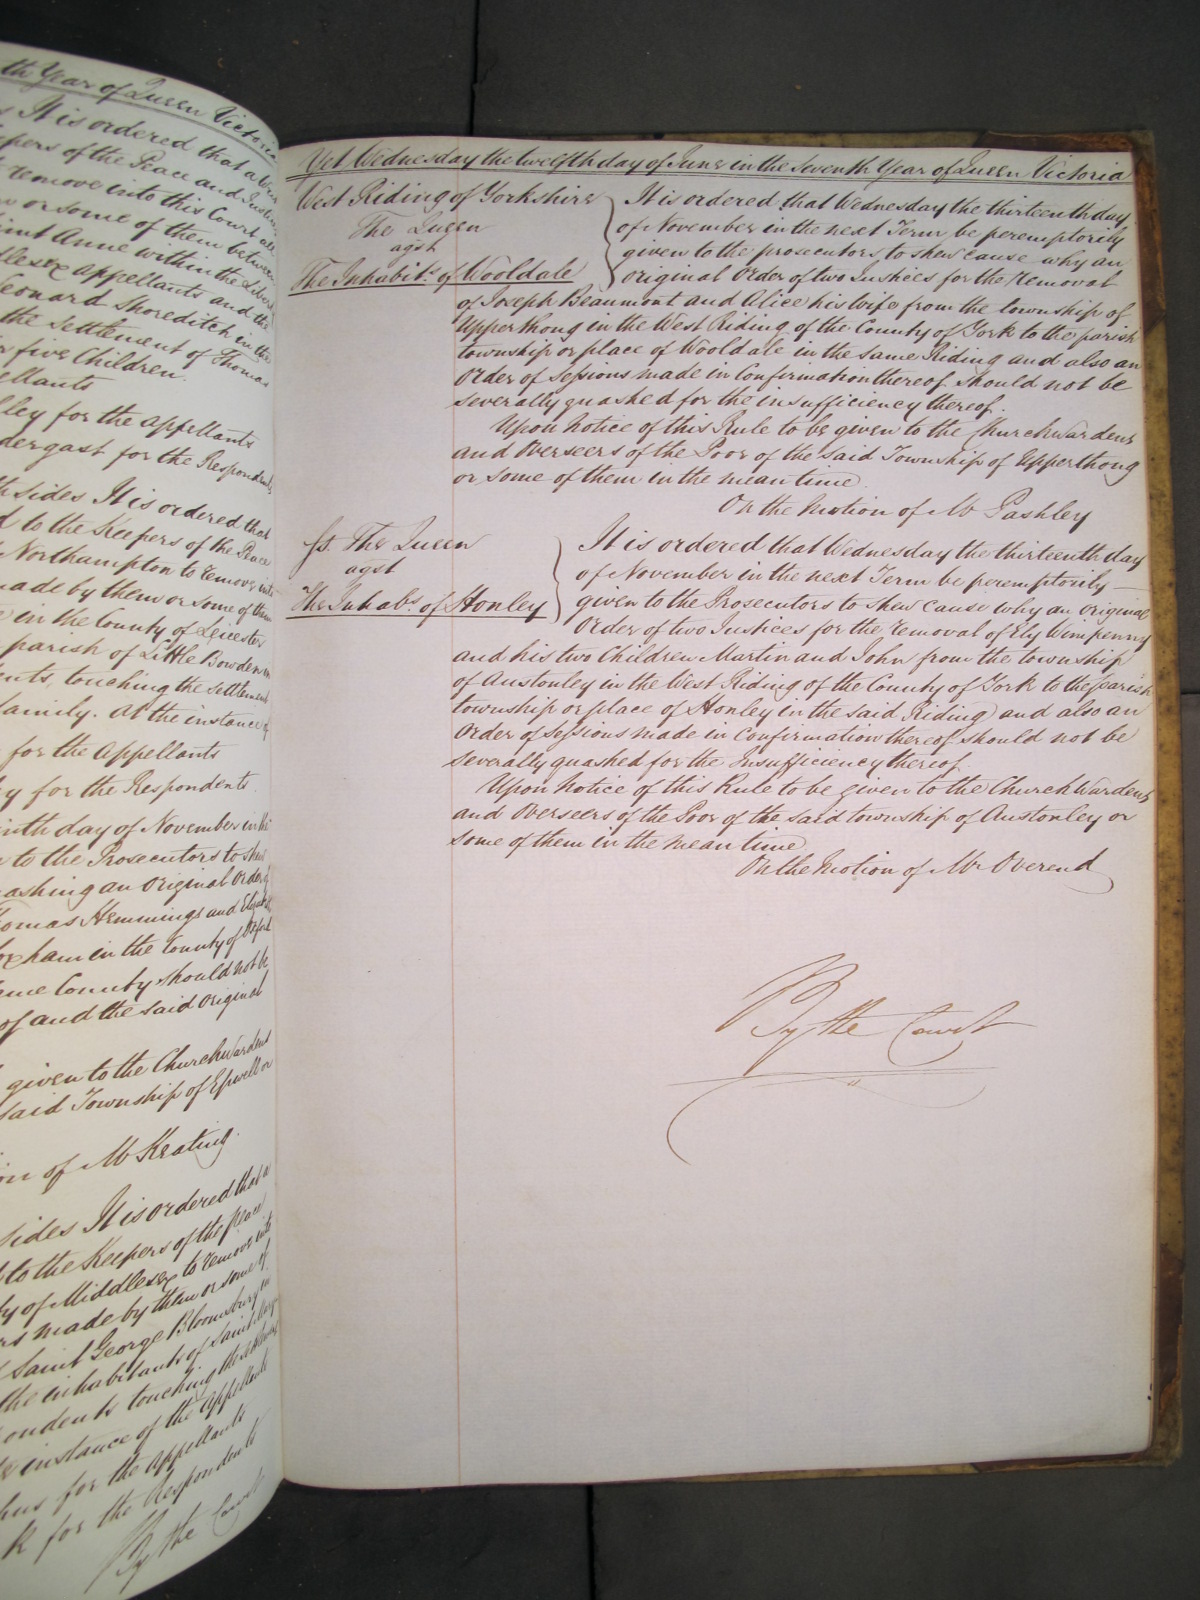 th Year of Queen Victoria
It is ordered that a Writ
Keepers of the Peace and Justices
remove into this Court all
or some of them between
Saint Anne within the Liberty
Middlesex appellants and the
Leonard Shoreditch in the
the Settlement of Thomas
five Children.
ellants
ley for the appellants
dergast for the Respondents
th sides It is ordered that
d to the Keepers of the Peace
Northampton to remove into
made by them or some of them
in the County of Leicester
parish of Little Bowden in
ents, touching the Settlement
family. At the instance of
for the Appellants
y for the Respondents.
inth day of November in the
n to the Prosecutors to shew
ashing an Original Order of
Thomas Hemmings and Elizabeth
ham in the County of Oxford
ame County should not be
of and the said Original
given to the Churchwardens
said Township of Epwell or
on of Mr Keating.
sides It is ordered that a
to the Keepers of the peace
ty of Middlesex to remove into
rs made by them or some of
Saint George Bloomsbury in
the inhabitants of Saint
ondents touching the settlement
instance of the Appellants
for the Appellants
k for the Respondents
By the Court
Yet Wednesday the twelfth day of June in the Seventh Year of Queen Victoria
West Riding of Yorkshire
The Queen
agst
The Inhabits. of Wooldale
It is ordered that Wednesday the thirteenth day
of November in the next Term be peremptorily
given to the prosecutors, to shew cause why an
original Order of two Justices for the removal
of Joseph Beaumont and Alice his wife from the township of
Upperthong in the West Riding of the County of York to the parish
township or place of Wooldale in the same Riding and also an
Order of Sessions made in Confirmation thereof should not be
severally quashed for the insufficiency thereof.
Upon Notice of this Rule to be given to the Churchwardens
and Overseers of the Poor of the said Township of Upperthong
or some of them in the mean time.
On the Motion of Mr Pashley
Js. The Queen
agst
The Inhabs. of Honley
It is ordered that Wednesday the thirteenth day
of November in the next Term be peremptorily
given to the Prosecutors to shew cause why an original
Order of two Justices for the removal of Ely Wimpenny
and his two Children Martin and John from the township
of Austonley in the West Riding of the County of York to the parish
township or place of Honley in the said Riding and also an
Order of Sessions made in Confirmation thereof should not be
severally quashed for the Insufficiency thereof.
Upon Notice of this Rule to be given to the ChurchWardens
and Overseers of the Poor of the said township of Austonley or
some of them in the mean time
On the Motion of Mr Overend
By the Court